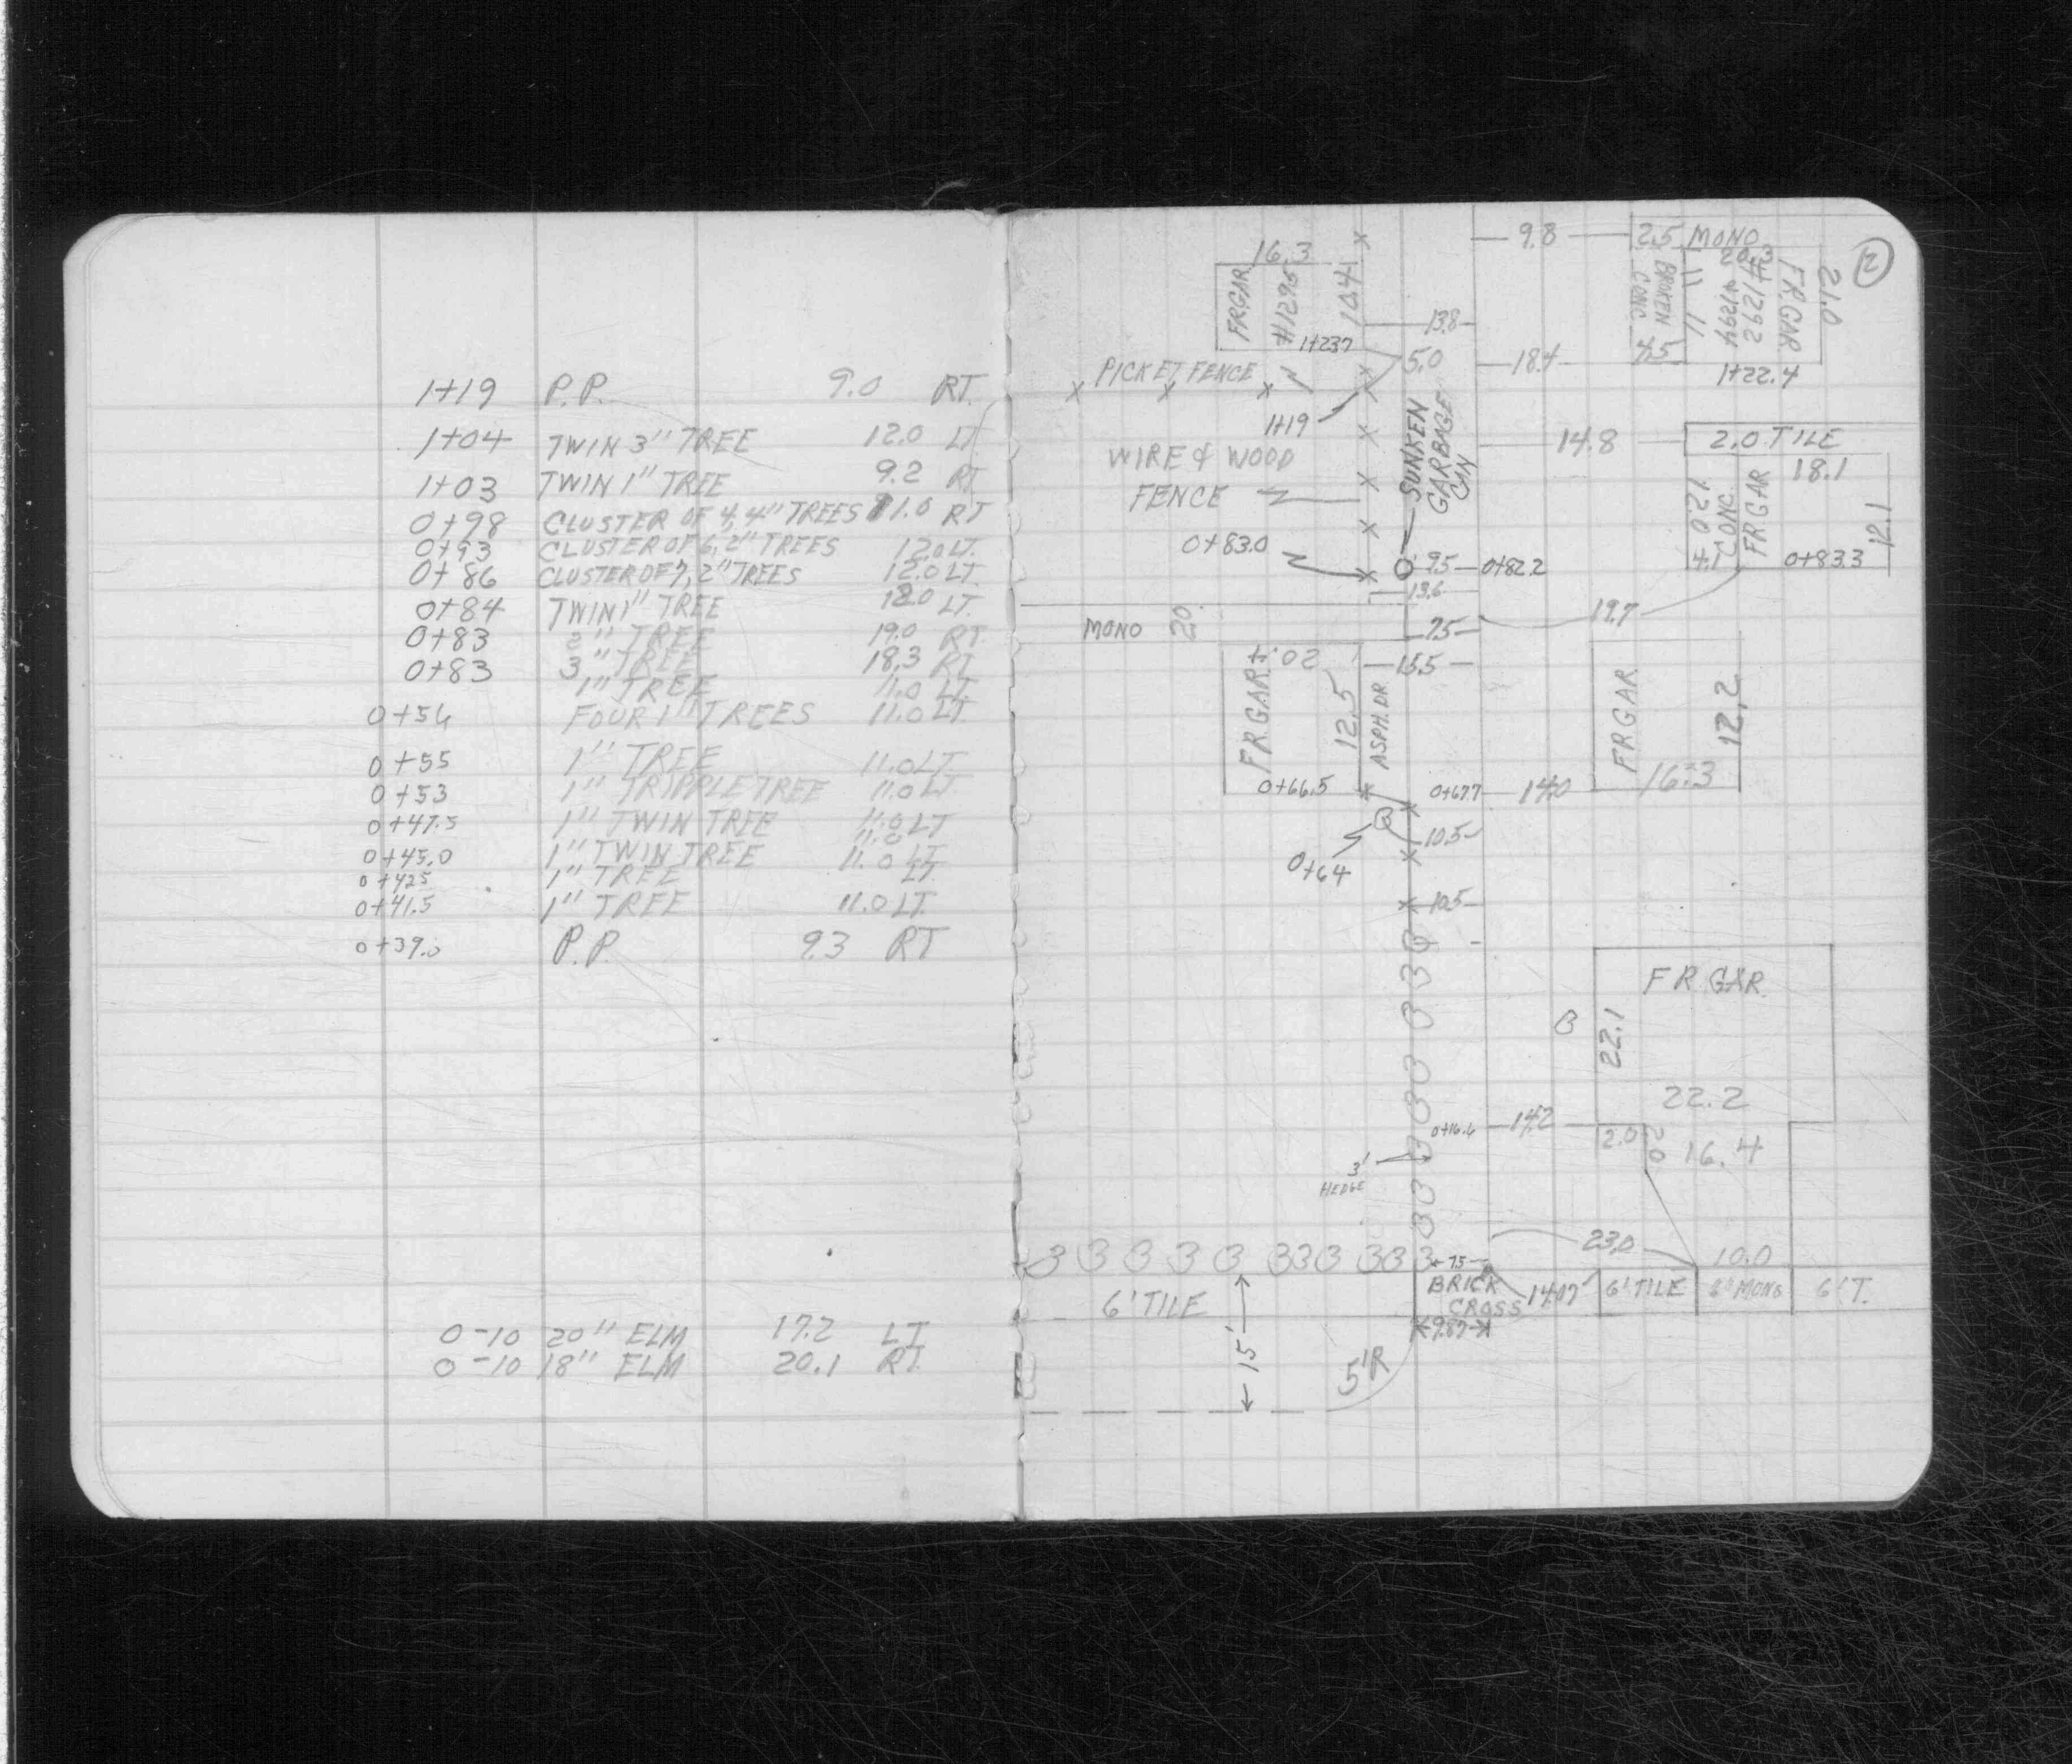 1+19 P.P. 9.0 RT.
1+04 TWIN 3" TREE 12.0 LT
1+03 TWIN 1" TREE 9.2 RT
0+98 CLUSTER OF 4, 4" TREES 11.0 RT
0+93 CLUSTER OF 6, 2" TREES 12.0 LT.
0+86 CLUSTER OF 7, 2" TREES 12.0 LT.
0+84 TWIN 1" TREE 12.0 LT.
0+83 2" TREE 19.0 RT.
0+83 3" TREE 18.3 RT
1" TREE 11.0 LT.
0+56 FOUR 1" TREES 11.0 LT.
0+55 1" TREE 11.0 LT
0+53 1" TRIPPLE TREE 11.0 LT.
0+47.5 1" TWIN TREE 11.0 LT
0+45.0 1" TWIN TREE 11.0 LT
0+42.5 1" TREE 11.0 LT.
0+41.5 1" TREE 11.0 LT.
0+39.0 P.P. 9.3 RT
0-10 20" ELM 17.2 LT
0-10 18" ELM 20.1 RT.
2
16.3
9.8
2.5 MONO
FR.GAR
#1295
10.4
BROKEN CONC.
4.5
20.3
#1292
FR.GAR
21.0
13.8
1+23.7
5.0
18.4
1+22.4
PICKET FENCE
1+19
WIRE & WOOD
FENCE
SUNKEN
GARBAGE
CAN
14.8
2.0 TILE
18.1
CONC.
4.1
FR.GAR
12.1
0+83.3
0+83.0
9.5
0+82.2
13.6
19.7
MONO 2.0'
7.5
20.4
FR.GAR.
12.5
ASPH. DR.
15.5
FR.GAR.
12.2
16.3
0+66.5
0+67.7
14.0
10.5
0+64
10.5
FR.GAR.
22.1
22.2
0+16.6
14.2
2.0
16.4
3'
HEDGE
23.0
10.0
7.5
BRICK
CROSS
14.07
6' TILE
6' MONO
6' T.
9.87
6' TILE
15'
5'R